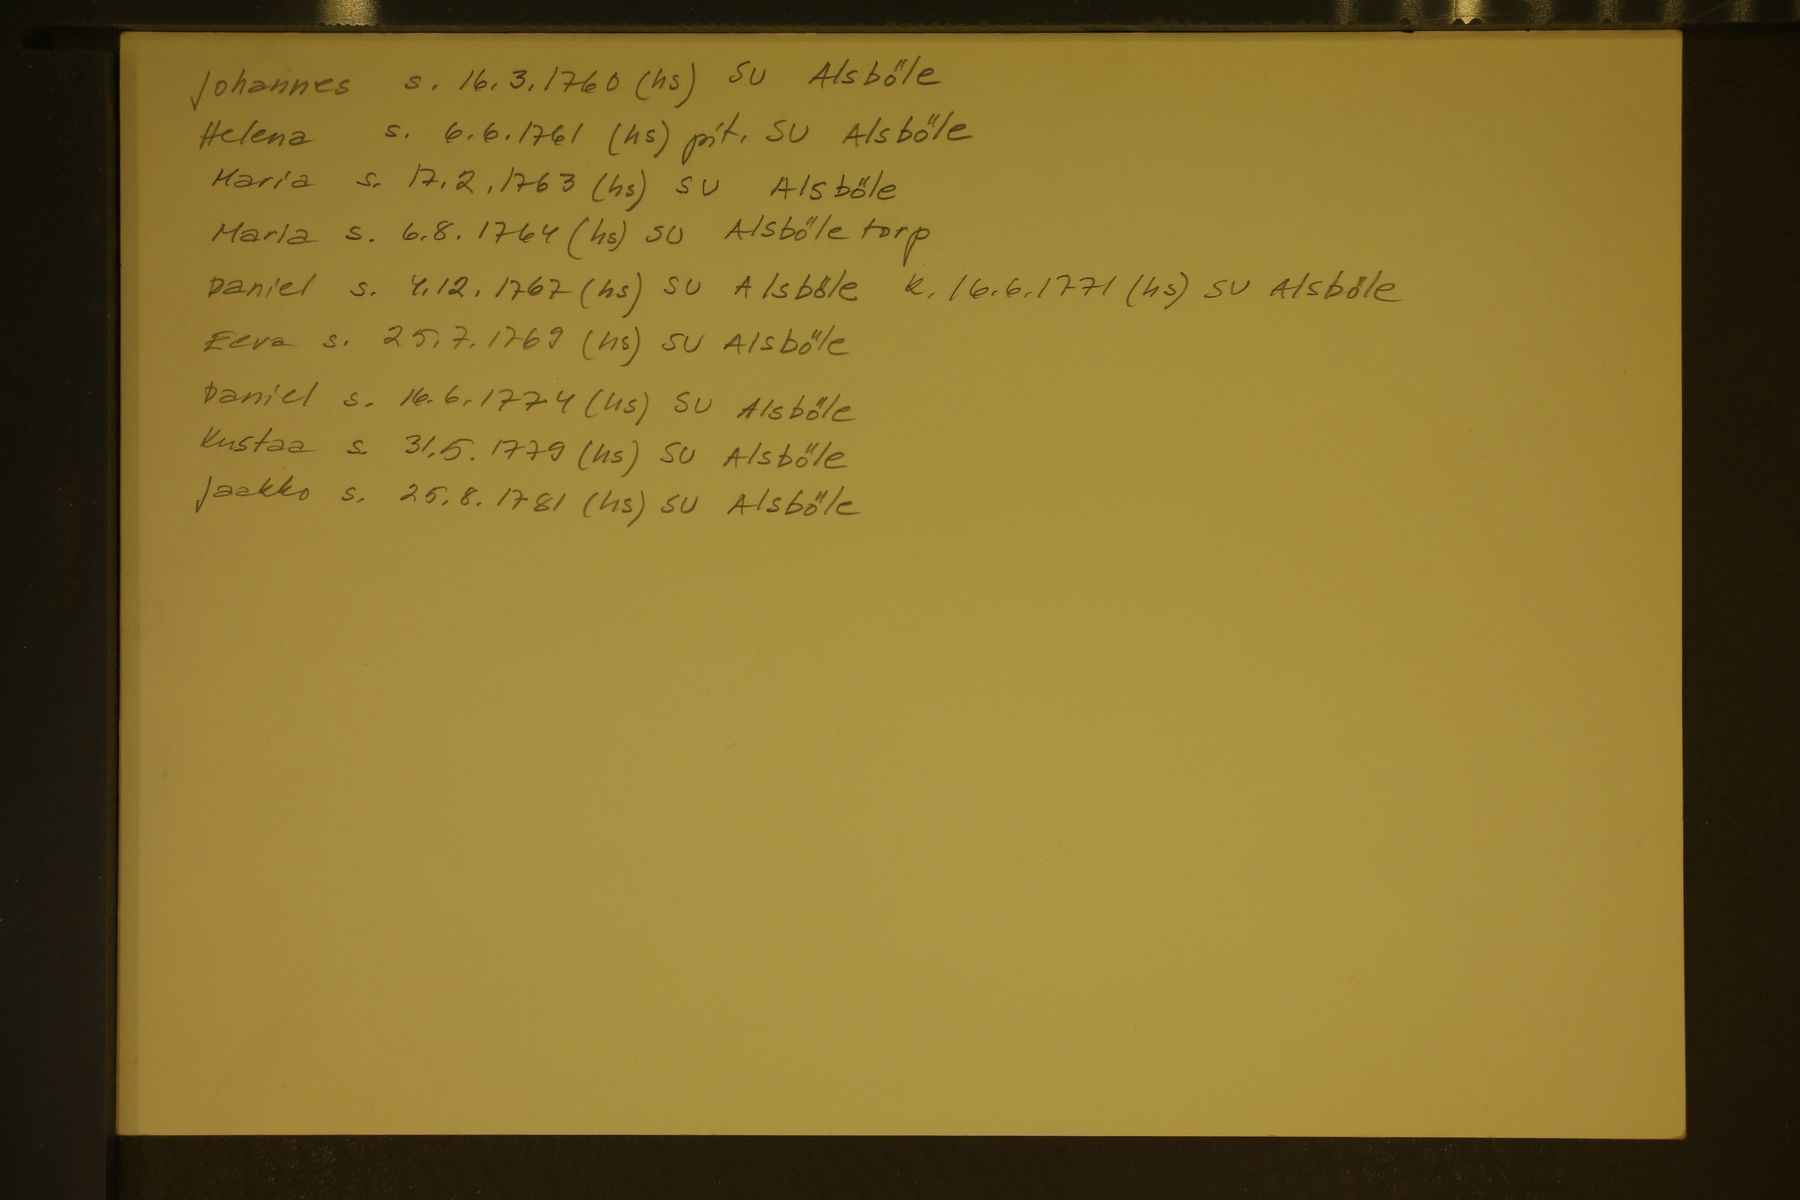 Johannes s. 16.3.1760 (hs) SU Alsböle
Helena s. 6.6.1761 (hs) pit. SU Alsböle
Maria s. 17.2.1763 (hs) SU Alsböle
Maria s. 6.8.1764 (hs) SU Alsböle torp
Daniel s. 4.12.1767 (hs) SU Alsböle k. 16.6.1771 (hs) SU Alsböle
Eeva s. 25.7.1769 (hs) SU Alsböle
Daniel s. 16.6.1774 (hs) SU Alsböle
Kustaa s. 31.5.1779 (hs) SU Alsböle
Jaakko s. 25.8.1781 (hs) SU Alsböle